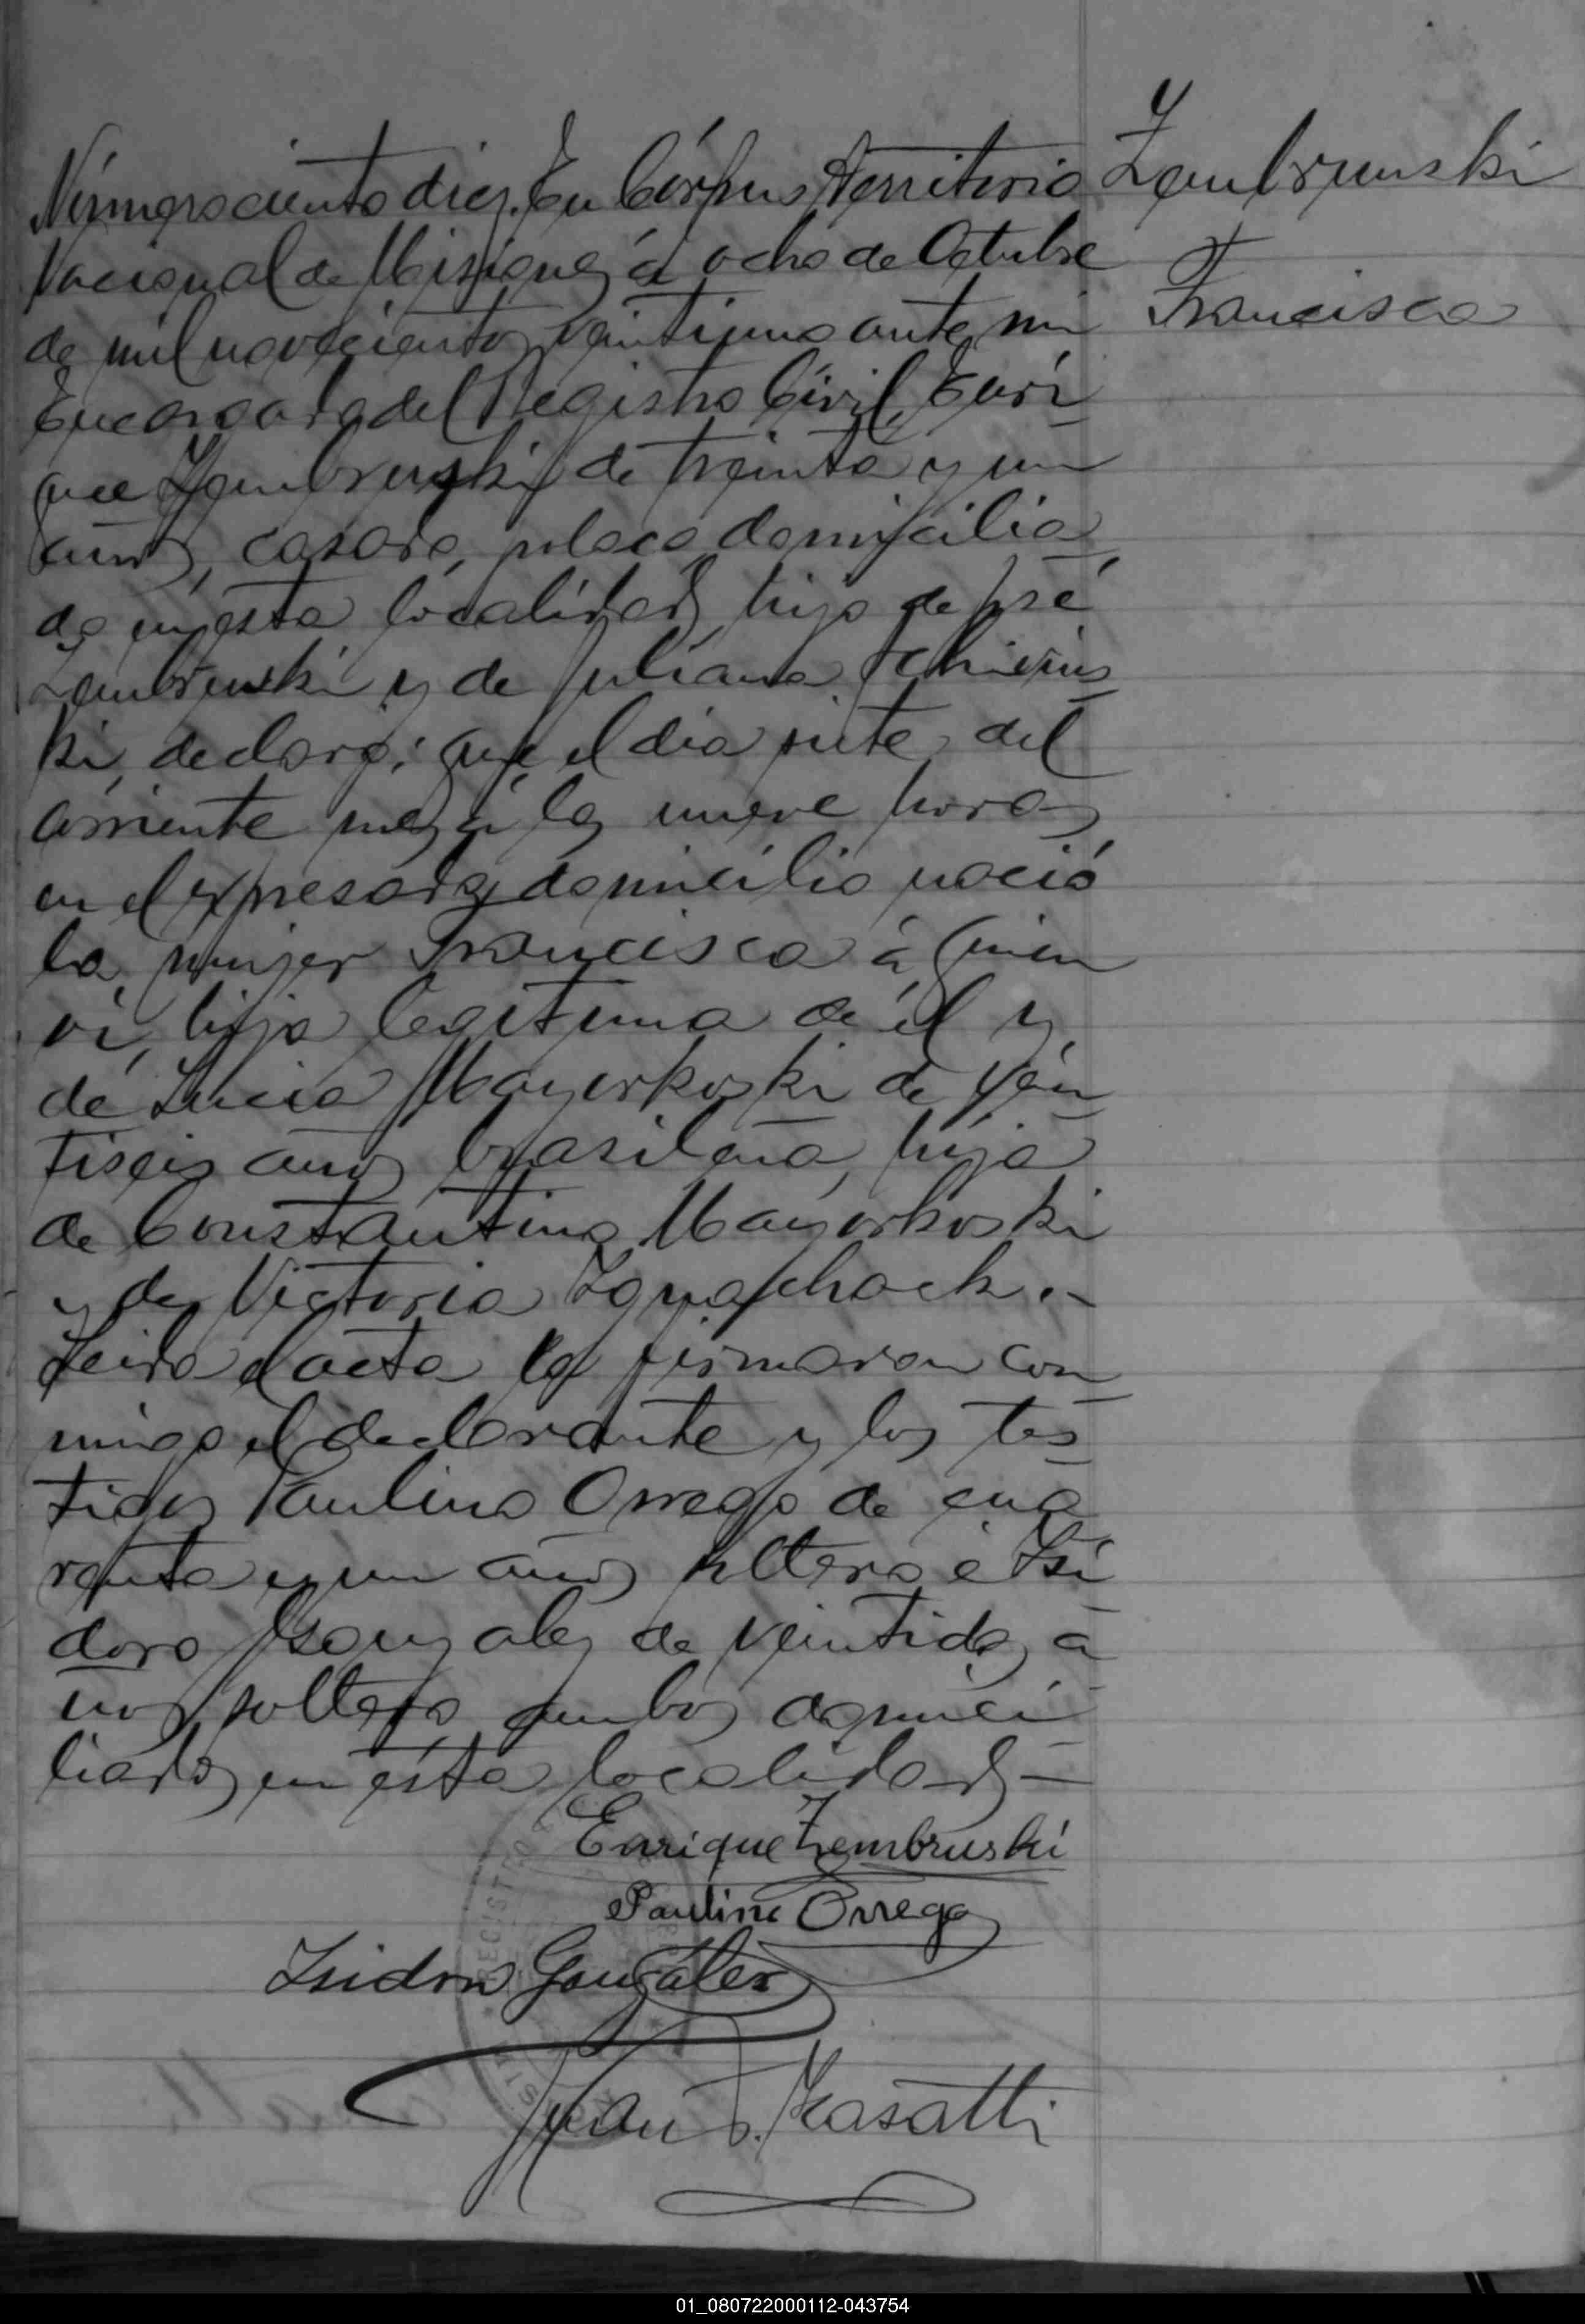 Zembruski
Francisca
Número ciento diez. En Córpus, Territorio
Nacional de Misiones, á ocho de Octubre
de mil novecientos veintiuno ante mi
Encargado del Registro Civil, Enri-
que Zembruski de treinta y un
años, casado, polaco, domicilia-
do en esta localidad, hijo de José
Zembruski y de Juliana
ki, declaró: que el dia siete del
corriente mes á las nueve horas
en el expresado domicilio nació
la mujer Francisca á quien
ví, hija legitima de él y
de Lucia Mayorkoski de vein-
tiseis años brasileña, hija
de Constantino Mayorkoski
y de Victoria
Leida el acta la firmaron con-
migo el declarante y los tes-
tigos Paulino Orrego de cua-
renta y un años soltero é Isi-
doro Gonzalez de veintidos a-
ños soltero ambos domici-
liados en ésta localidad —
Enrique Zembruski
Paulino Orrego
Isidoro González
Juan Kasatti
REGISTRO
01_080722000112-043754